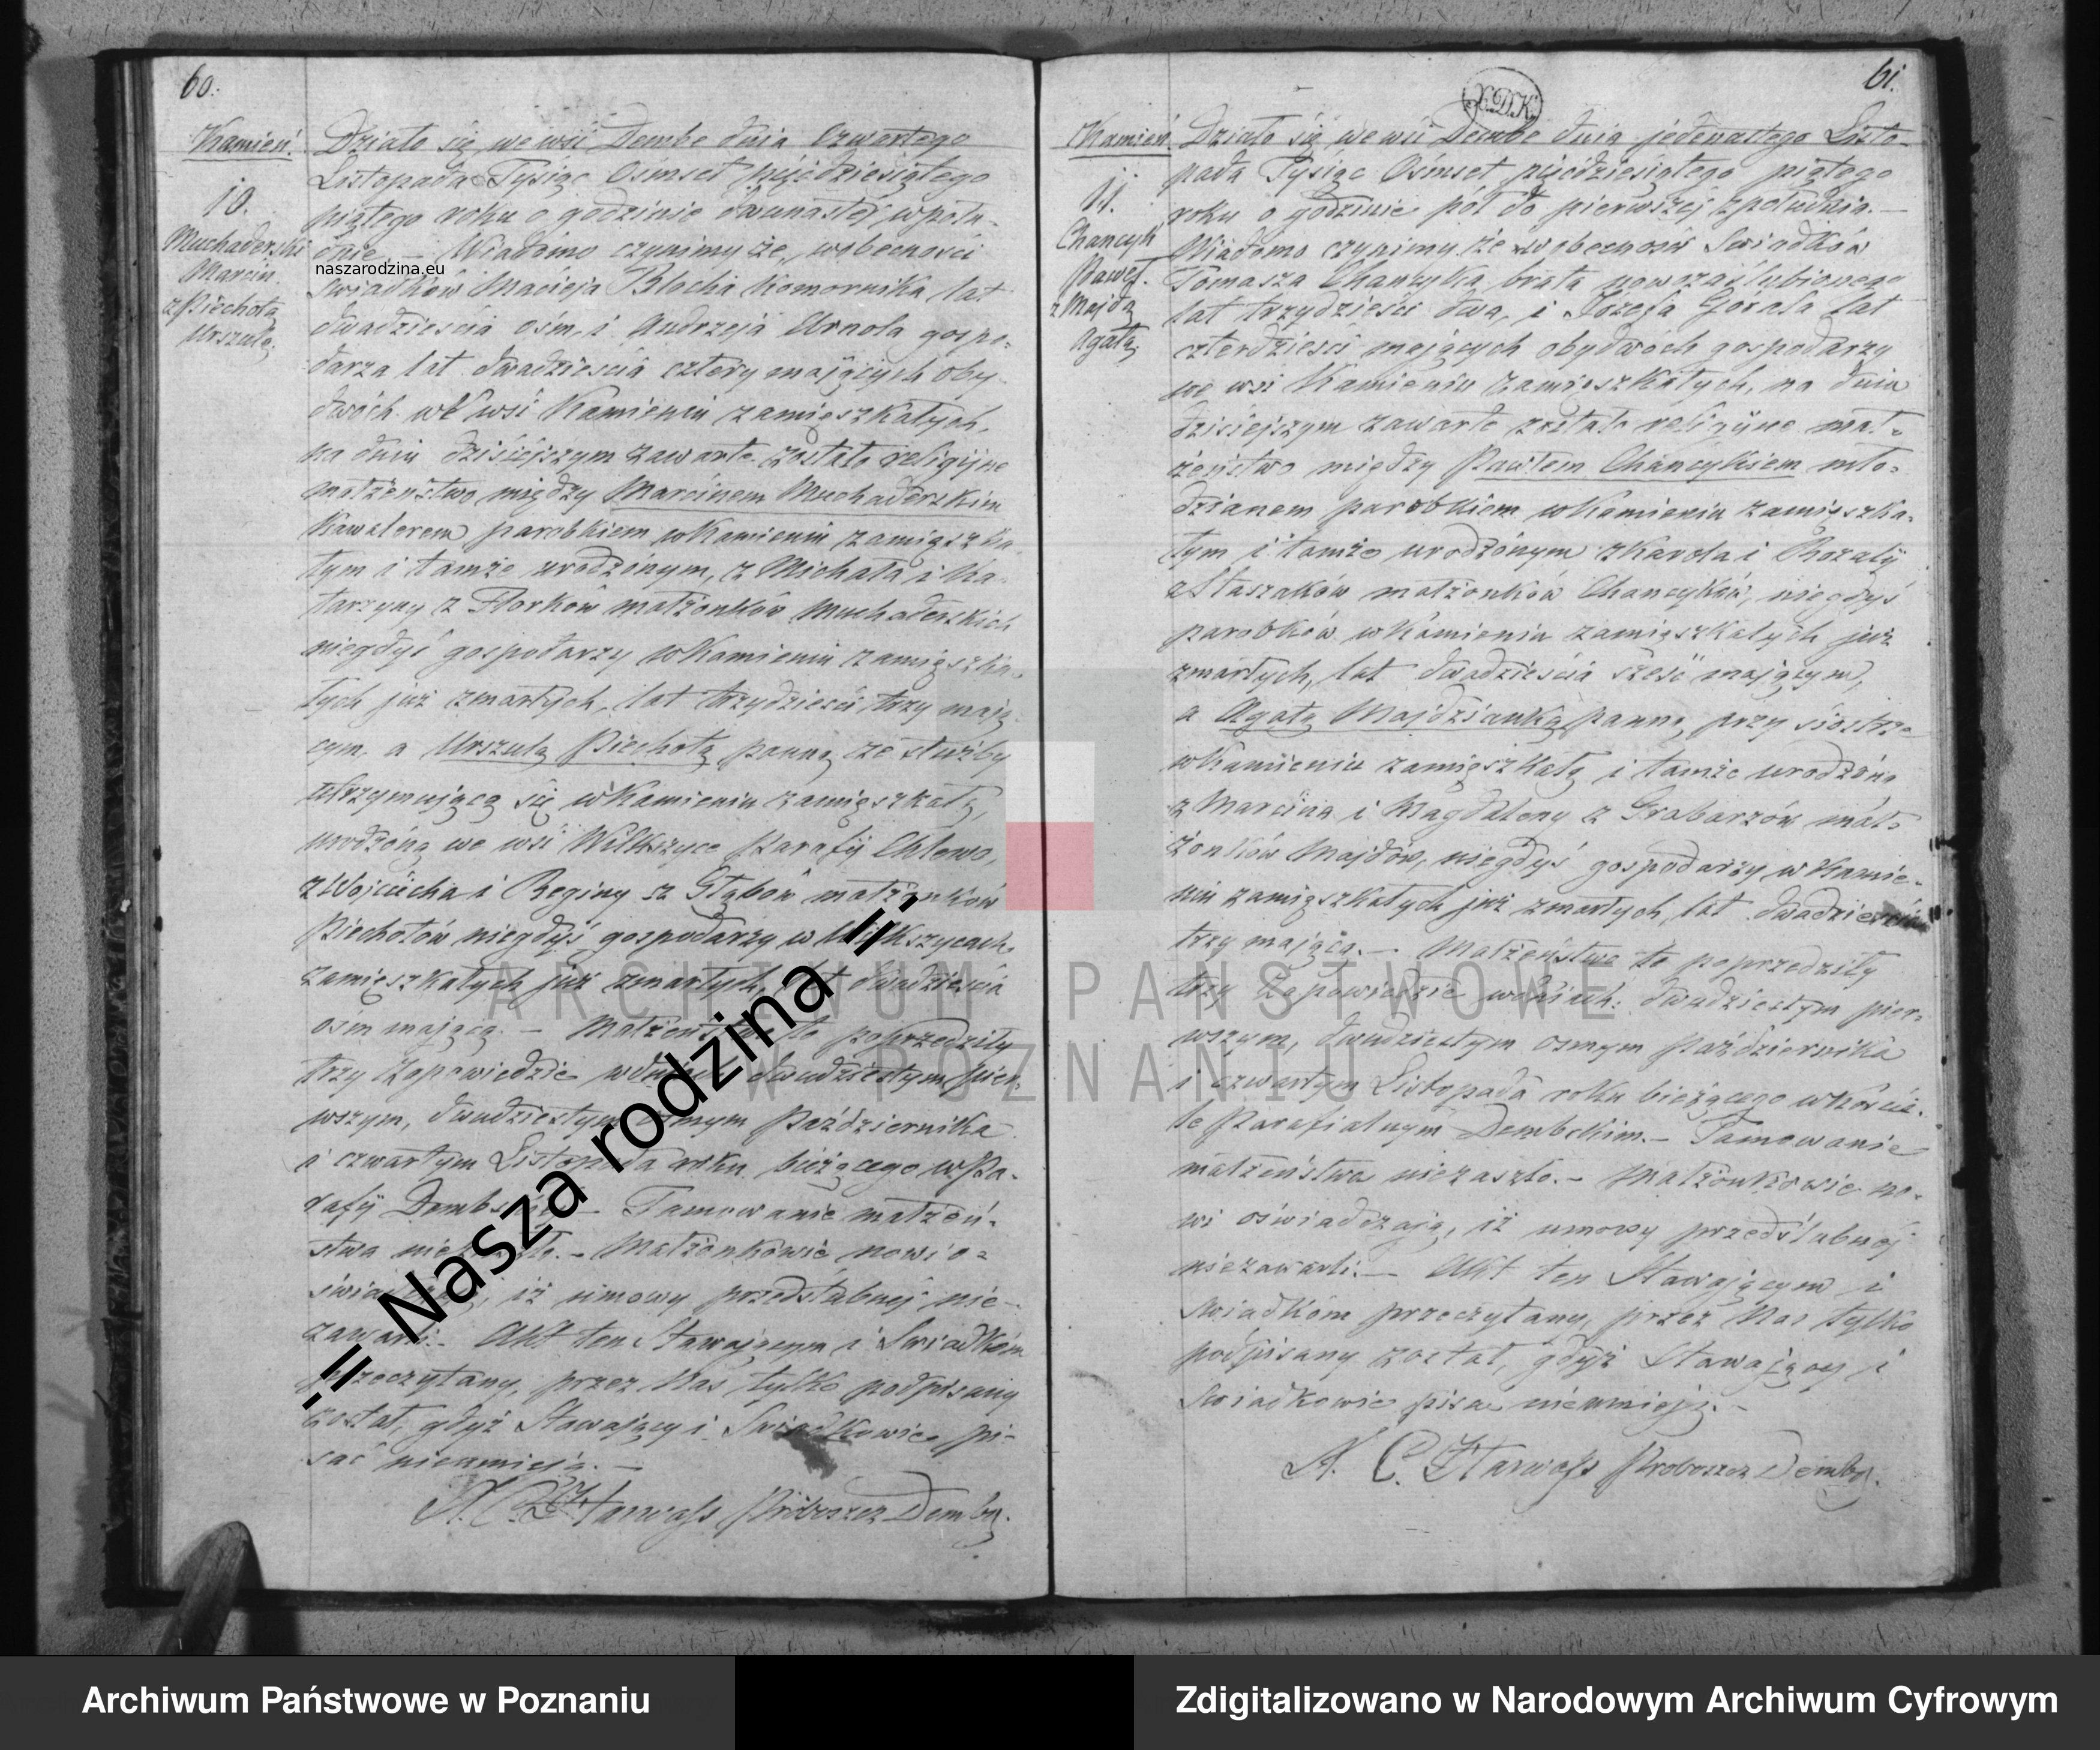 60.
Kamień.
10.
Muchaderski
Marcin.
z Piechotą
Urszulą.
Działo się we wsi Dembe dnia Czwartego
Listopada Tysiąc Ośmset pięćdziesiątego
piątego roku o godzinie dwunastej w połu-
dnie. — Wiadomo czynimy że, w obecności
naszarodzina.eu
Swiadków Macieja Blocha Komornika lat
dwadzieścia ośm, i Andrzeja Urnola gospo-
darza lat dwadzieścia cztery mających oby-
dwóch we wsi Kamieniu zamięszkałych,
na dniu dzisiejszym zawarte zostało religijne
małżeństwo między Marcinem Muchaderskim
Kawalerem parobkiem w Kamieniu zamięszka-
łym i tamże urodzonym, z Michała i Ka-
tarzyny z Florków małżonków Muchaderskich
niegdyś gospodarzy w Kamieniu zamięszka-
łych już zmarłych, lat trzydzieści trzy mają-
cym, a Urszulą Piechotą panną ze służby
utrzymującą się w Kamieniu zamięszkałą,
urodzoną we wsi Wilkszyce Parafij Chlewo,
z Wojciecha i Reginy z Głąbów małżonków
Piechotów niegdyś gospodarzy w Wilkszycach
zamięszkałych już zmarłych, lat dwadzieścia
ośm mającą. — Małżeństwo to poprzedziły
trzy Zapowiedzie w dniach dwudziestym pier-
wszym, dwudziestym osmym Października
i czwartym Listopada roku bieżącego w Pa-
rafij Dembskiej — Tamowanie małżeń-
stwa niezaszło. — Małżonkowie nowi o-
świadczają, iż umowy przedślubnej nie-
zawarli. — Akt ten Stawającym i Swiadkom
przeczytany, przez Nas tylko podpisany
został, gdyż Stawający i Swiadkowie pi-
sać nieumieją. —
Proboszcz Demby.
= Nasza rodzina =
61.
X.D.K.
Kamień.
11.
Chancyk
Paweł.
z Majdą
Agatą.
Działo się we wsi Dembe dnia jedenastego Listo-
pada Tysiąc Ośmset pięćdziesiątego piątego
roku o godzinie pół do pierwszej z południa. —
Wiadomo czynimy, że w obecności Swiadków
Tomasza Chancyka brata nowozaślubionego
lat trzydzieści dwa, i Józefa Gorala lat
czterdzieści mających obydwóch gospodarzy
we wsi Kamieniu zamieszkałych, na dniu
dzisiejszym zawarte zostało religijne mał-
żeństwo między Pawłem Chancykiem mło-
dzianem parobkiem w Kamieniu zamięszka-
łym i tamże urodzonym z Karola i Rozalij
z Staszaków małżonków Chancyków, niegdyś
parobków w Kamieniu zamięszkałych już
zmarłych, lat dwadzieścia sześć mającym,
a Agatą Majdzianką panną, przy siostrze
w Kamieniu zamięszkałą i tamże urodzoną
z Marcina i Magdaleny z Grabarzów mał-
żonków Majdów, niegdyś gospodarzy w Kamie-
niu zamięszkałych już zmarłych, lat dwadzieścia
trzy mającą. — Małżeństwo to poprzedziły
trzy Zapowiedzie w dniach: dwudziestym pier-
wszym, dwudziestym osmym Października
i czwartym Listopada roku bieżącego w Koscie-
le Parafialnym Dembskim. — Tamowanie
małżeństwa niezaszło. — Małżonkowie no-
wi oświadczają, iż umowy przedślubnej
niezawarli. — Akt ten Stawającym i
Swiadkom przeczytany, przez Nas tylko
podpisany został, gdyż Stawający i
Swiadkowie pisać nieumieją. —
Proboszcz Demby.
ARCHIWUM PAŃSTWOWE
W POZNANIU
Archiwum Państwowe w Poznaniu
Zdigitalizowano w Narodowym Archiwum Cyfrowym